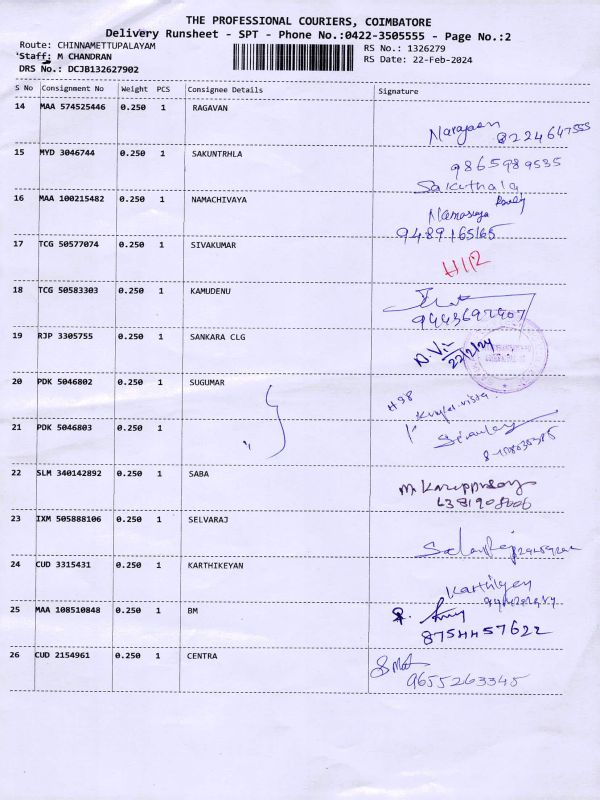 THE PROFESSIONAL COURIERS, COIMBATORE
Delivery Runsheet - SPT - Phone No.:0422-3505555 - Page No.:2
Route: CHINNAMETTUPALAYAM RS No.: 1326279
Staff: M CHANDRAN RS Date: 22-Feb-2024
DRS No.: DCJB132627902
S No Consignment No Weight PCS Consignee Details Signature
14 MAA 574525446 0.250 1 RAGAVAN
8224647555
15 MYD 3046744 0.250 1 SAKUNTRHLA
9865989535
Sakuthala
16 MAA 100215482 0.250 1 NAMACHIVAYA
9489165165
17 TCG 50577074 0.250 1 SIVAKUMAR
H12
18 TCG 50583303 0.250 1 KAMUDENU
9443697907
19 RJP 3305755 0.250 1 SANKARA CLG
22/2/24
20 PDK 5046802 0.250 1 SUGUMAR
21 PDK 5046803 0.250 1 "
22 SLM 340142892 0.250 1 SABA
23 IXM 505888106 0.250 1 SELVARAJ
24 CUD 3315431 0.250 1 KARTHIKEYAN
25 MAA 108510848 0.250 1 BM
8754457622
26 CUD 2154961 0.250 1 CENTRA
9655263345